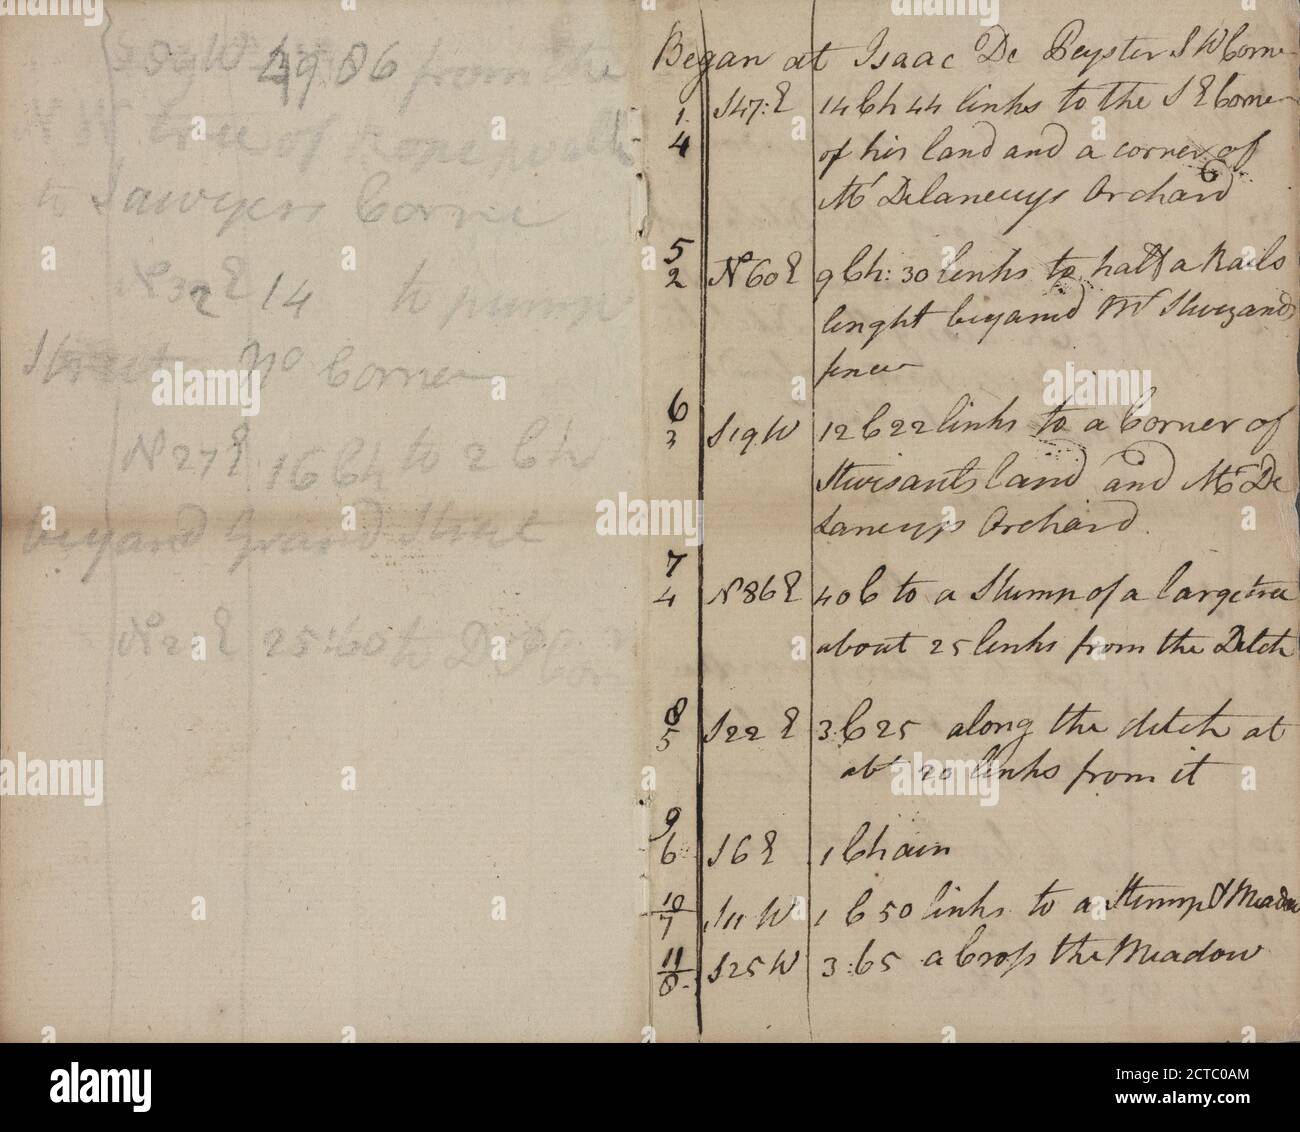 S 89 W 49 86 from the
N W tree of Rope walk
to Sawyers Corne
N 32 E 14 to pump
Street No Corner
N 27 E 16 Ch to 2 Ch
beyand Grand Street
N 2 E 25:60 to
Began at Isaac De Peyster S W Corne
1 4 S 47: E 14 Ch 44 links to the S E Corner
of his land and a corner of
6
Mr Delanceys Orchard
5 2 N 60 E 9 Ch: 30 links to half a Rails
lenght beyand Mr Stuezands
fence
6 3 S 19 W 12 C 22 links to a Corner of
Stuisants land and Mr De
Lanceys Orchard
7 4 N 86 E 40 C to a Stump of a large tree
about 25 links from the Ditch
8 5 S 22 E 3 C 25 along the ditch at
abt 20 links from it
9 6 S 6 E 1 Chain
10 7 S 11 W 1 C 50 links to a Stump & Meadow
11 8 S 25 W 3:65 a Cross the Meadow
alamy
Image ID: 2CTC0AM
www.alamy.com